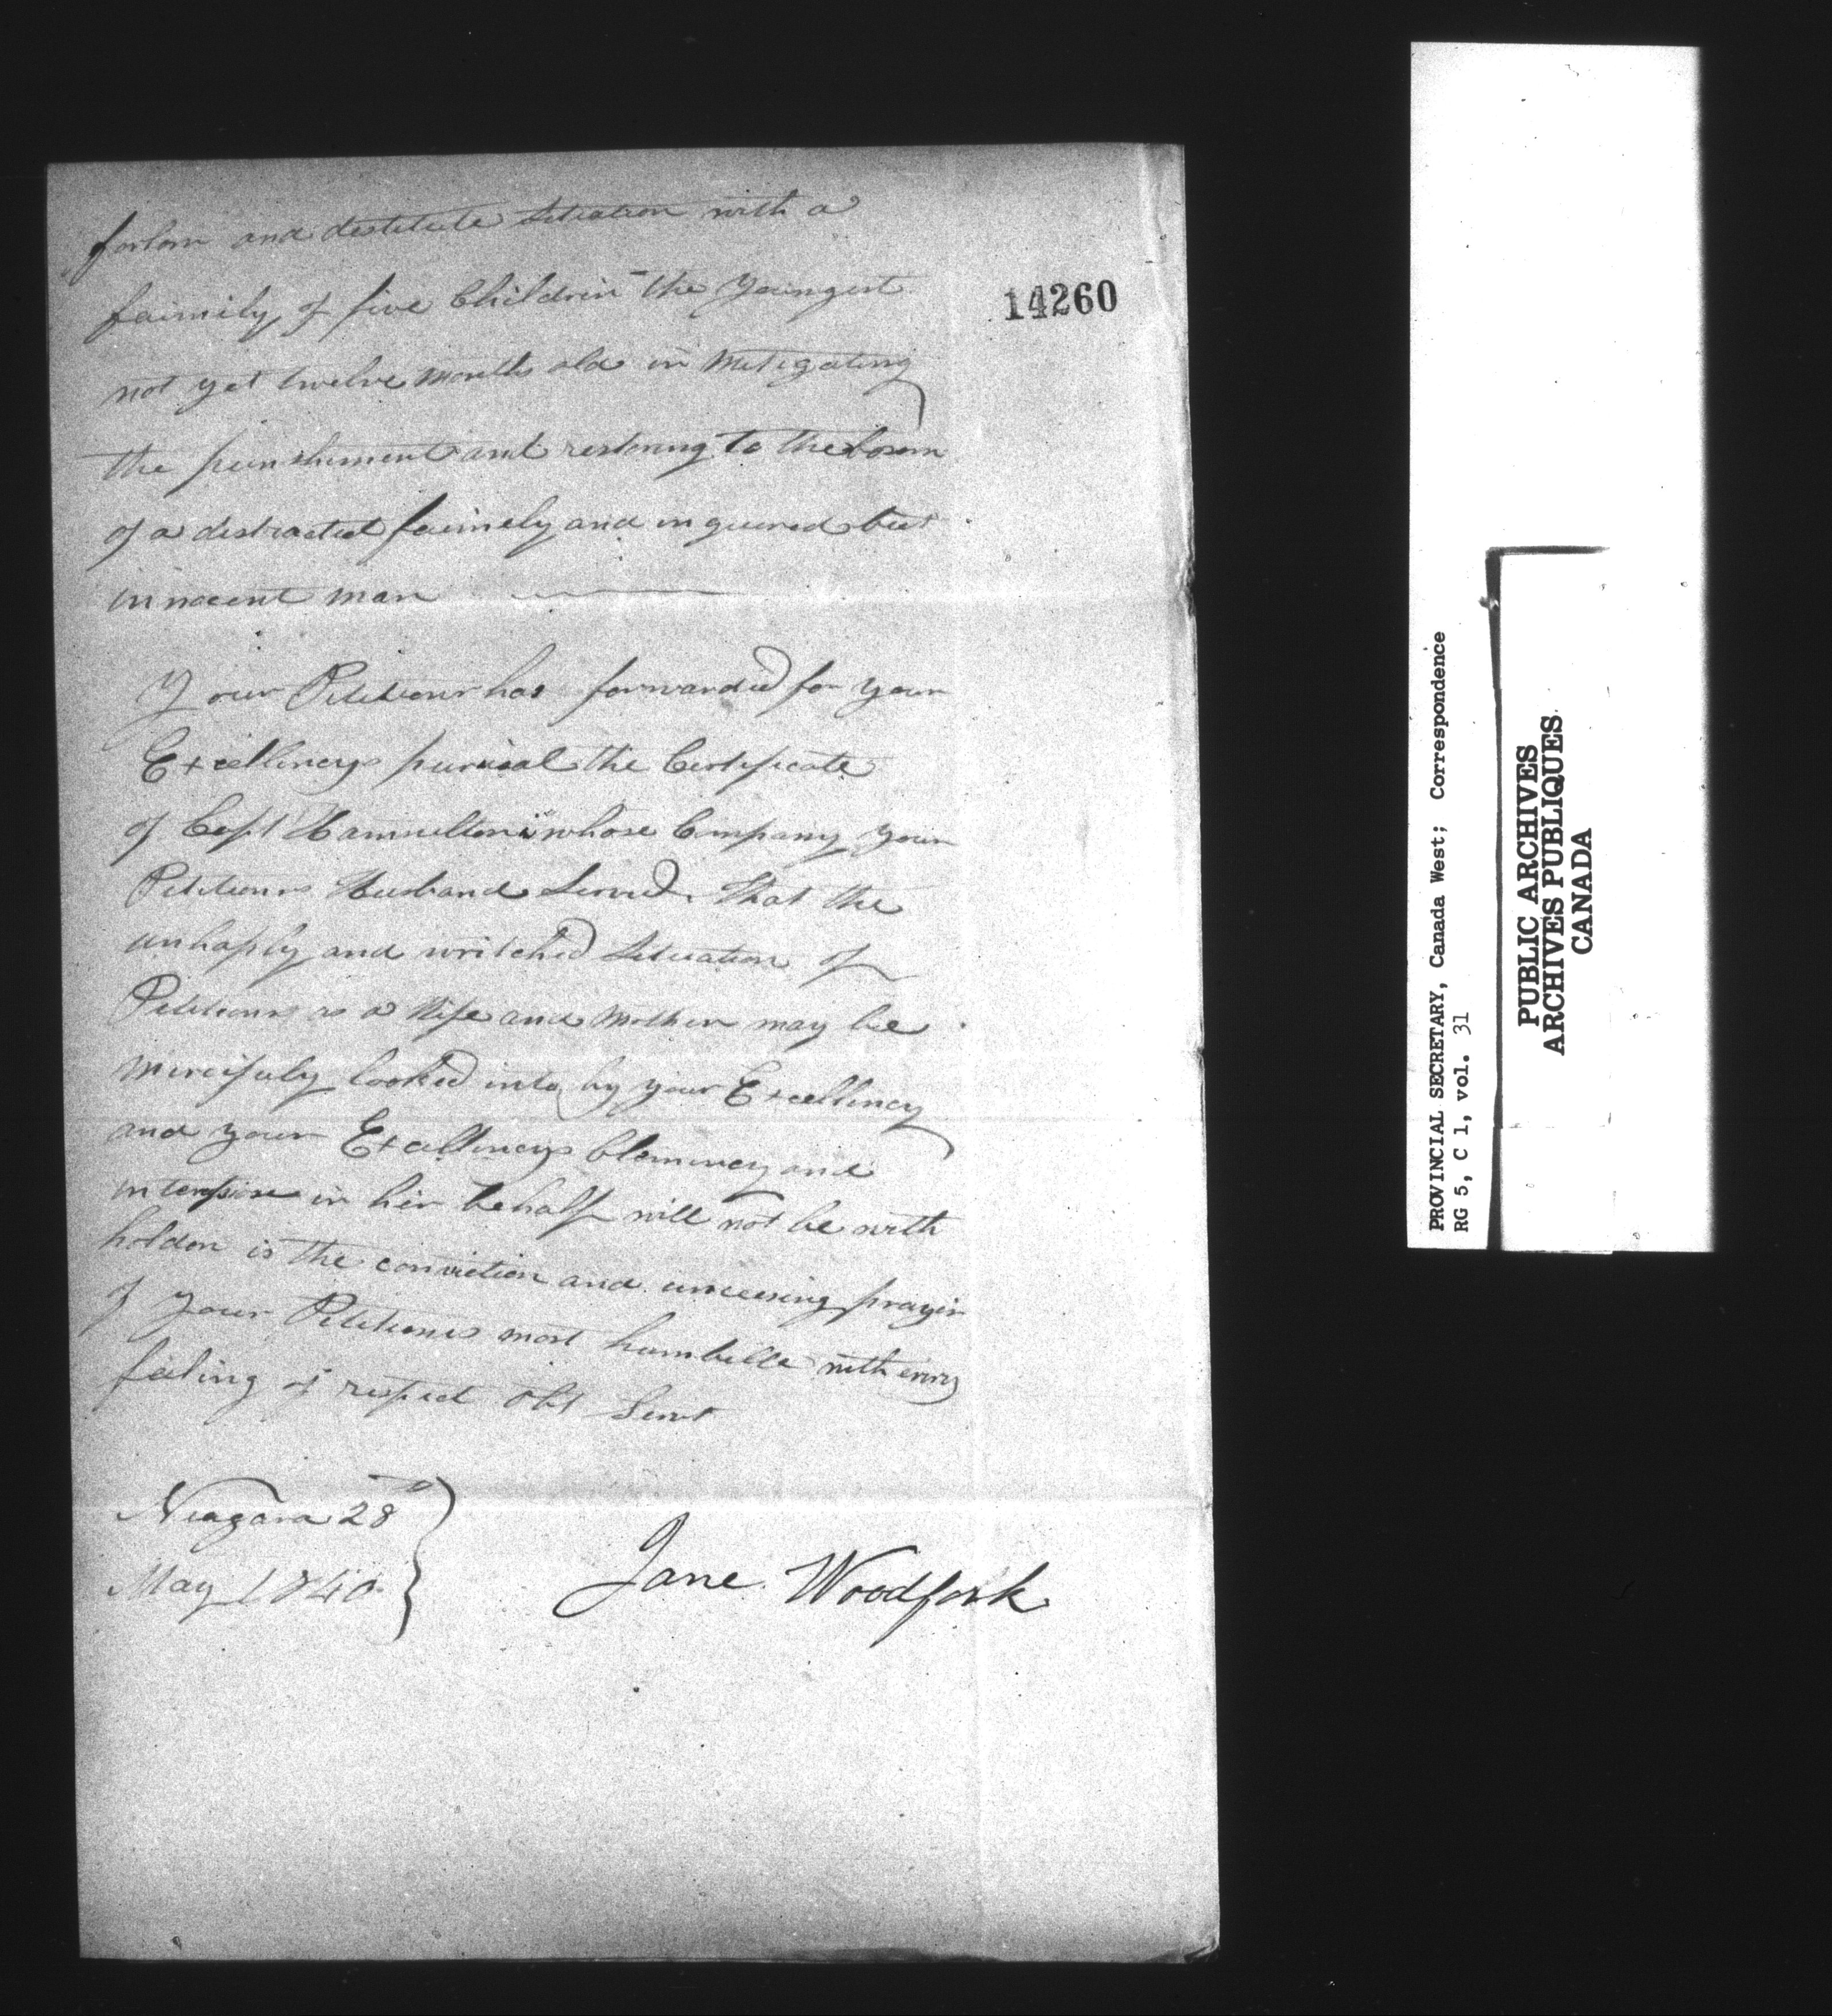 forlorn and destitute Situation with a
faimily of five Childrin the Youngest
14260
not yet twelve month old in Mitigating
the punishment and restoring to the bosom
of a distracted faimely and ingured but
innocent man
Your Petitionr has forwarded for your
Excellencys purusal the Certificate
of Capt Hamilton in whose Company your
Petitionrs Husband Served. That the
unhappy and writched Situation of
Petitionrs as a Wife and Mother may be
Mercifuly looked into by your Excellency
and your Excellincys Clemincy and
in her behalf will not be with
holdon is the conviction and unceesing prayir
of your Petitioners most humbelle with every
feeling of respect Obt Servt
Niagara 28th
May 1840
Jane Woodfork
PROVINCIAL SECRETARY, Canada West; Correspondence
RG 5, C 1, vol. 31
PUBLIC ARCHIVES
ARCHIVES PUBLIQUES
CANADA